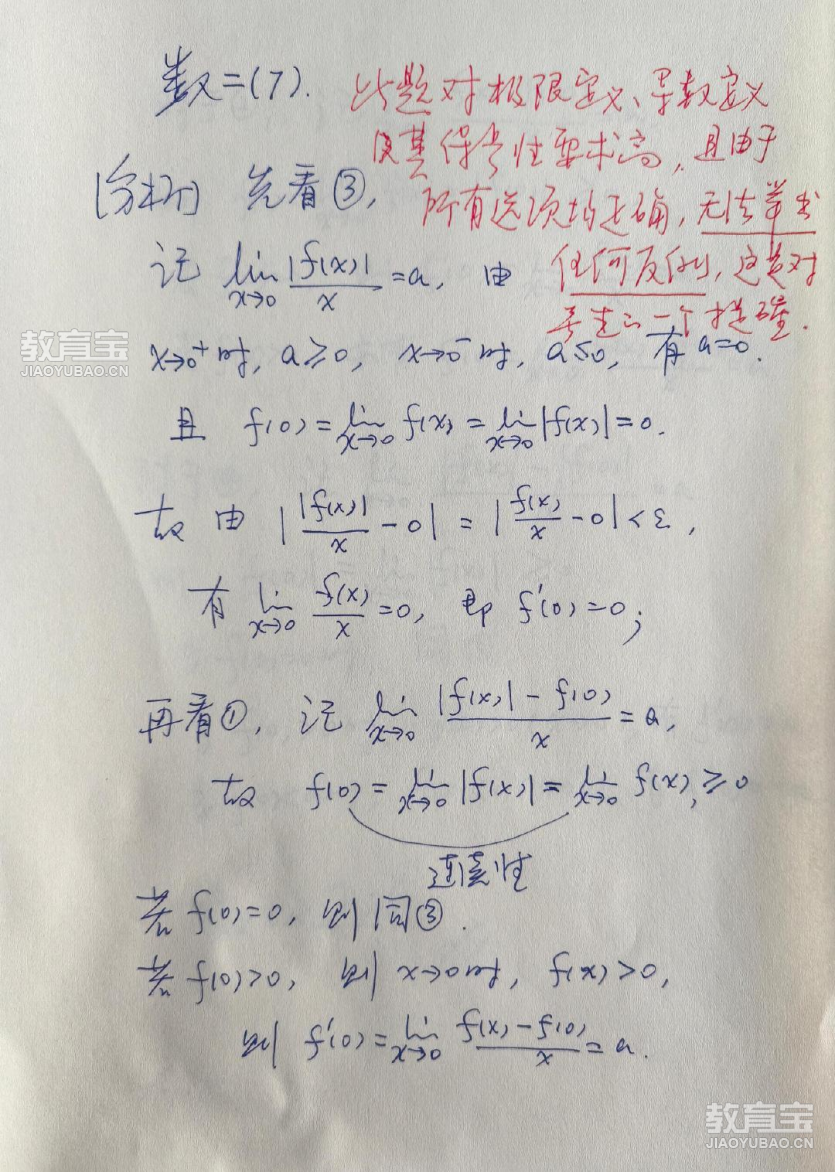 数二(7).
此题对极限定义、导数定义
及其保号性要求高,且由于
所有选项均正确,无法举出
任何反例,这是对
考生的一个挑战.
[分析] 先看③,
记 lim_{x→0} |f(x)|/x = a, 由
x→0⁺时, a≥0, x→0⁻时, a≤0, 有 a=0.
且 f(0) = lim_{x→0} f(x) = lim_{x→0} |f(x)| = 0.
故由 | |f(x)|/x - 0 | = | f(x)/x - 0 | < ε,
有 lim_{x→0} f(x)/x = 0, 即 f'(0) = 0;
再看①, 记 lim_{x→0} (|f(x)| - f(0))/x = a,
故 f(0) = lim_{x→0} |f(x)| = lim_{x→0} f(x), ≥0
连续性
若 f(0)=0, 则同③.
若 f(0)>0, 则 x→0时, f(x)>0,
则 f'(0) = lim_{x→0} (f(x) - f(0))/x = a.
教育宝
JIAOYUBAO.CN
教育宝
JIAOYUBAO.CN